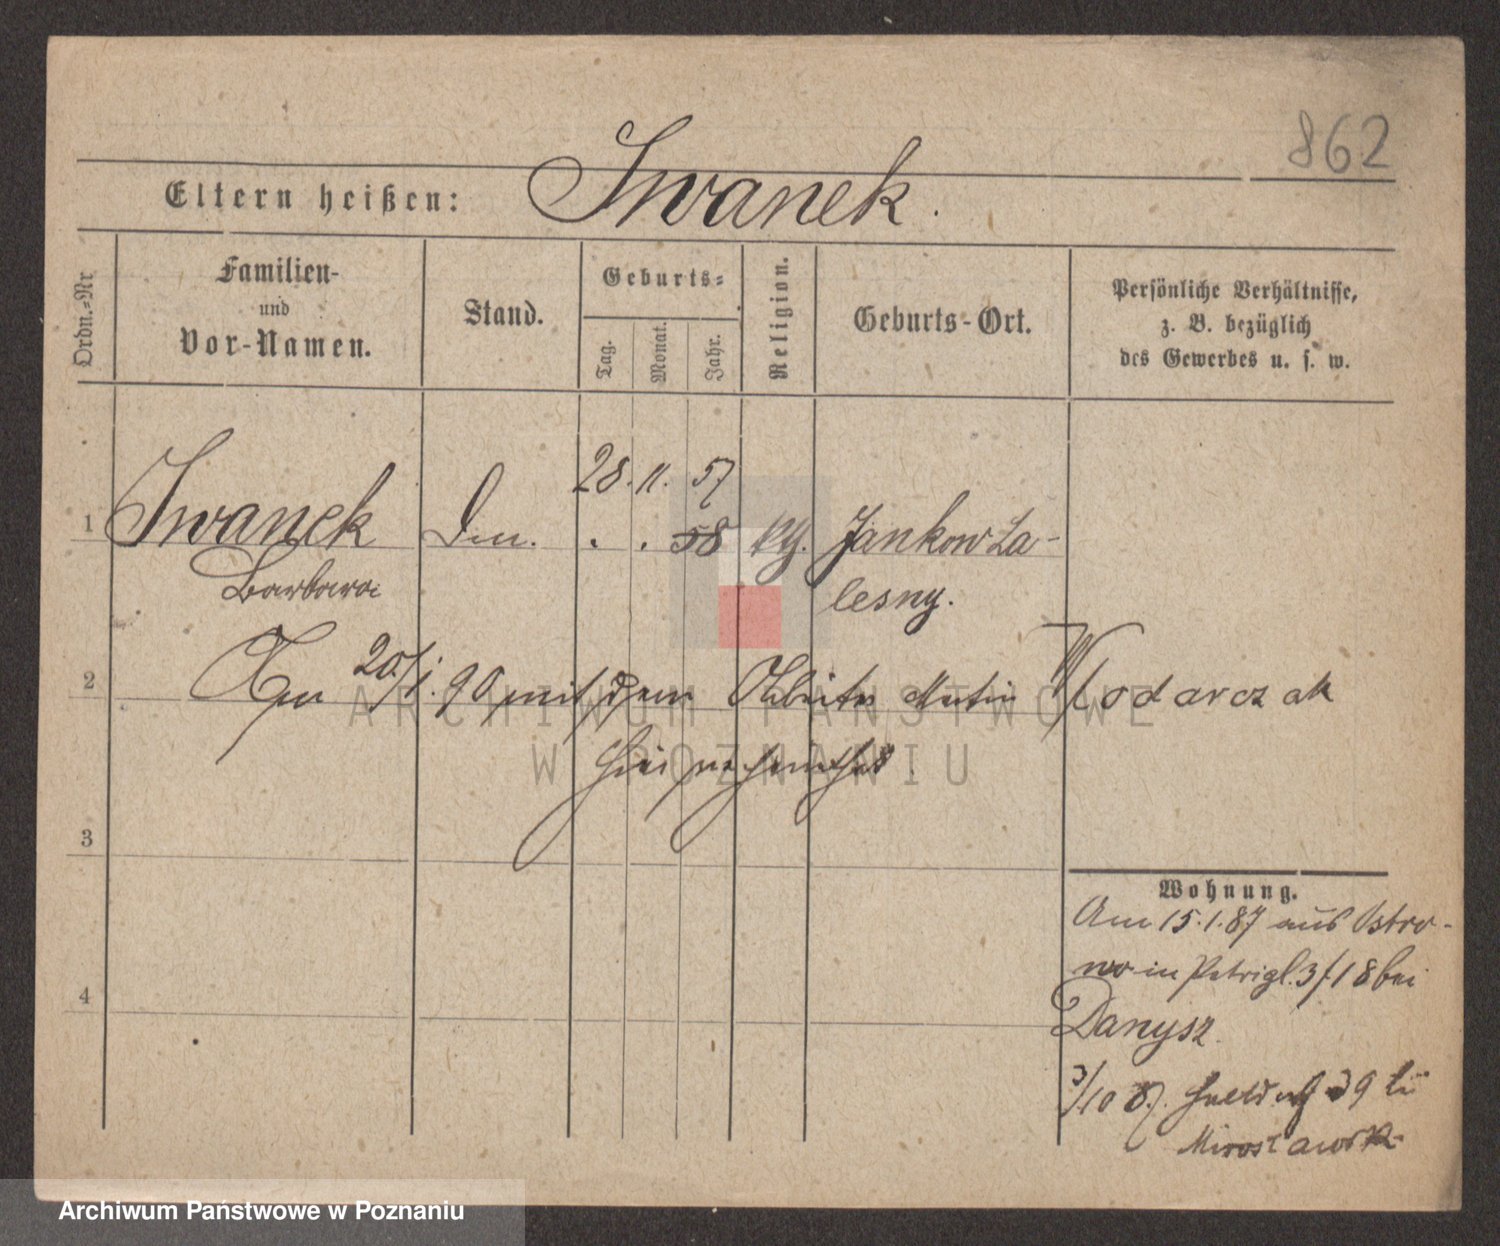 862
Eltern heißen: Iwanek.
Ordn.-Nr
Familien-
und
Vor-Namen.
Stand.
Geburts-
Tag.
Monat.
Jahr.
Religion.
Geburts-Ort.
Persönliche Verhältnisse,
z. B. bezüglich
des Gewerbes u. s. w.
28. 11. 57
1 Iwanek . . 58 Jankow Za-
Barbara lesny.
2 Am 20/1. 90 mit dem Wlodarczak
hier
3
Wohnung.
Am 15.1.87 aus Ostro-
wo in Petrigl. 3/18 bei
4
Danysz
3/10 87. 39
ARCHIWUM PAŃSTWOWE
W POZNANIU
Archiwum Państwowe w Poznaniu